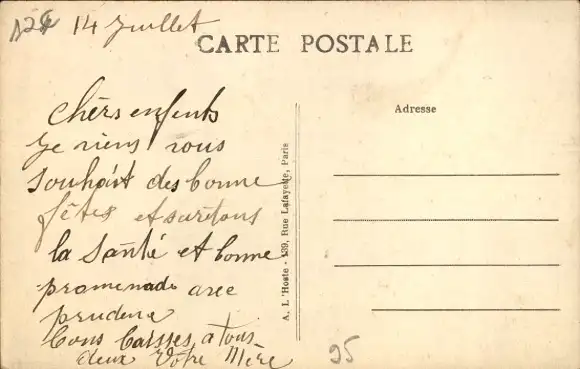 14 Juillet
CARTE POSTALE
Chèrs enfents
Je viens vous
souhait des bonne
fêtes et surtous
la Santé et bonne
promenade avec
prudence
bons baisses a tous
deux Votre Mère
A. L'Hoste - 139, Rue Lafayette, Paris
Adresse